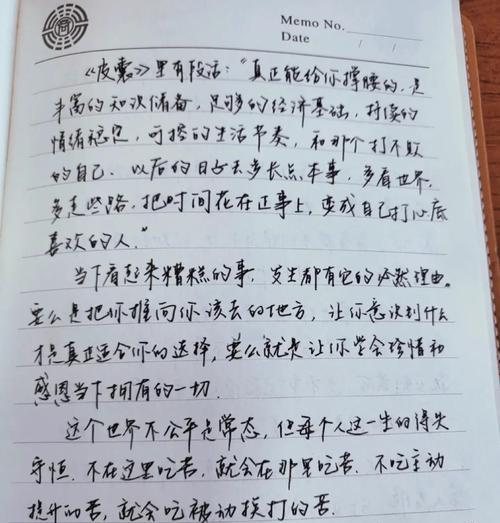 Memo No.
Date / /
《皮囊》里有段话:"真正能给你撑腰的,是
丰富的知识储备,足够的经济基础,持续的
情绪稳定,可控的生活节奏,和那个打不败
的自己.以后的日子去多长点本事,多看世界,
多走些路,把时间花在正事上,变成自己打心底
喜欢的人."
当下看起来糟糕的事,发生都有它的必然理由.
要么是把你推向你该去的地方,让你意识到什么
才是真正适合你的选择,要么就是让你学会珍惜和
感恩当下拥有的一切.
这个世界不公平是常态,但每个人这一生的得失
守恒.不在这里吃苦,就会在那里吃苦.不吃主动
提升的苦,就会吃被动挨打的苦.